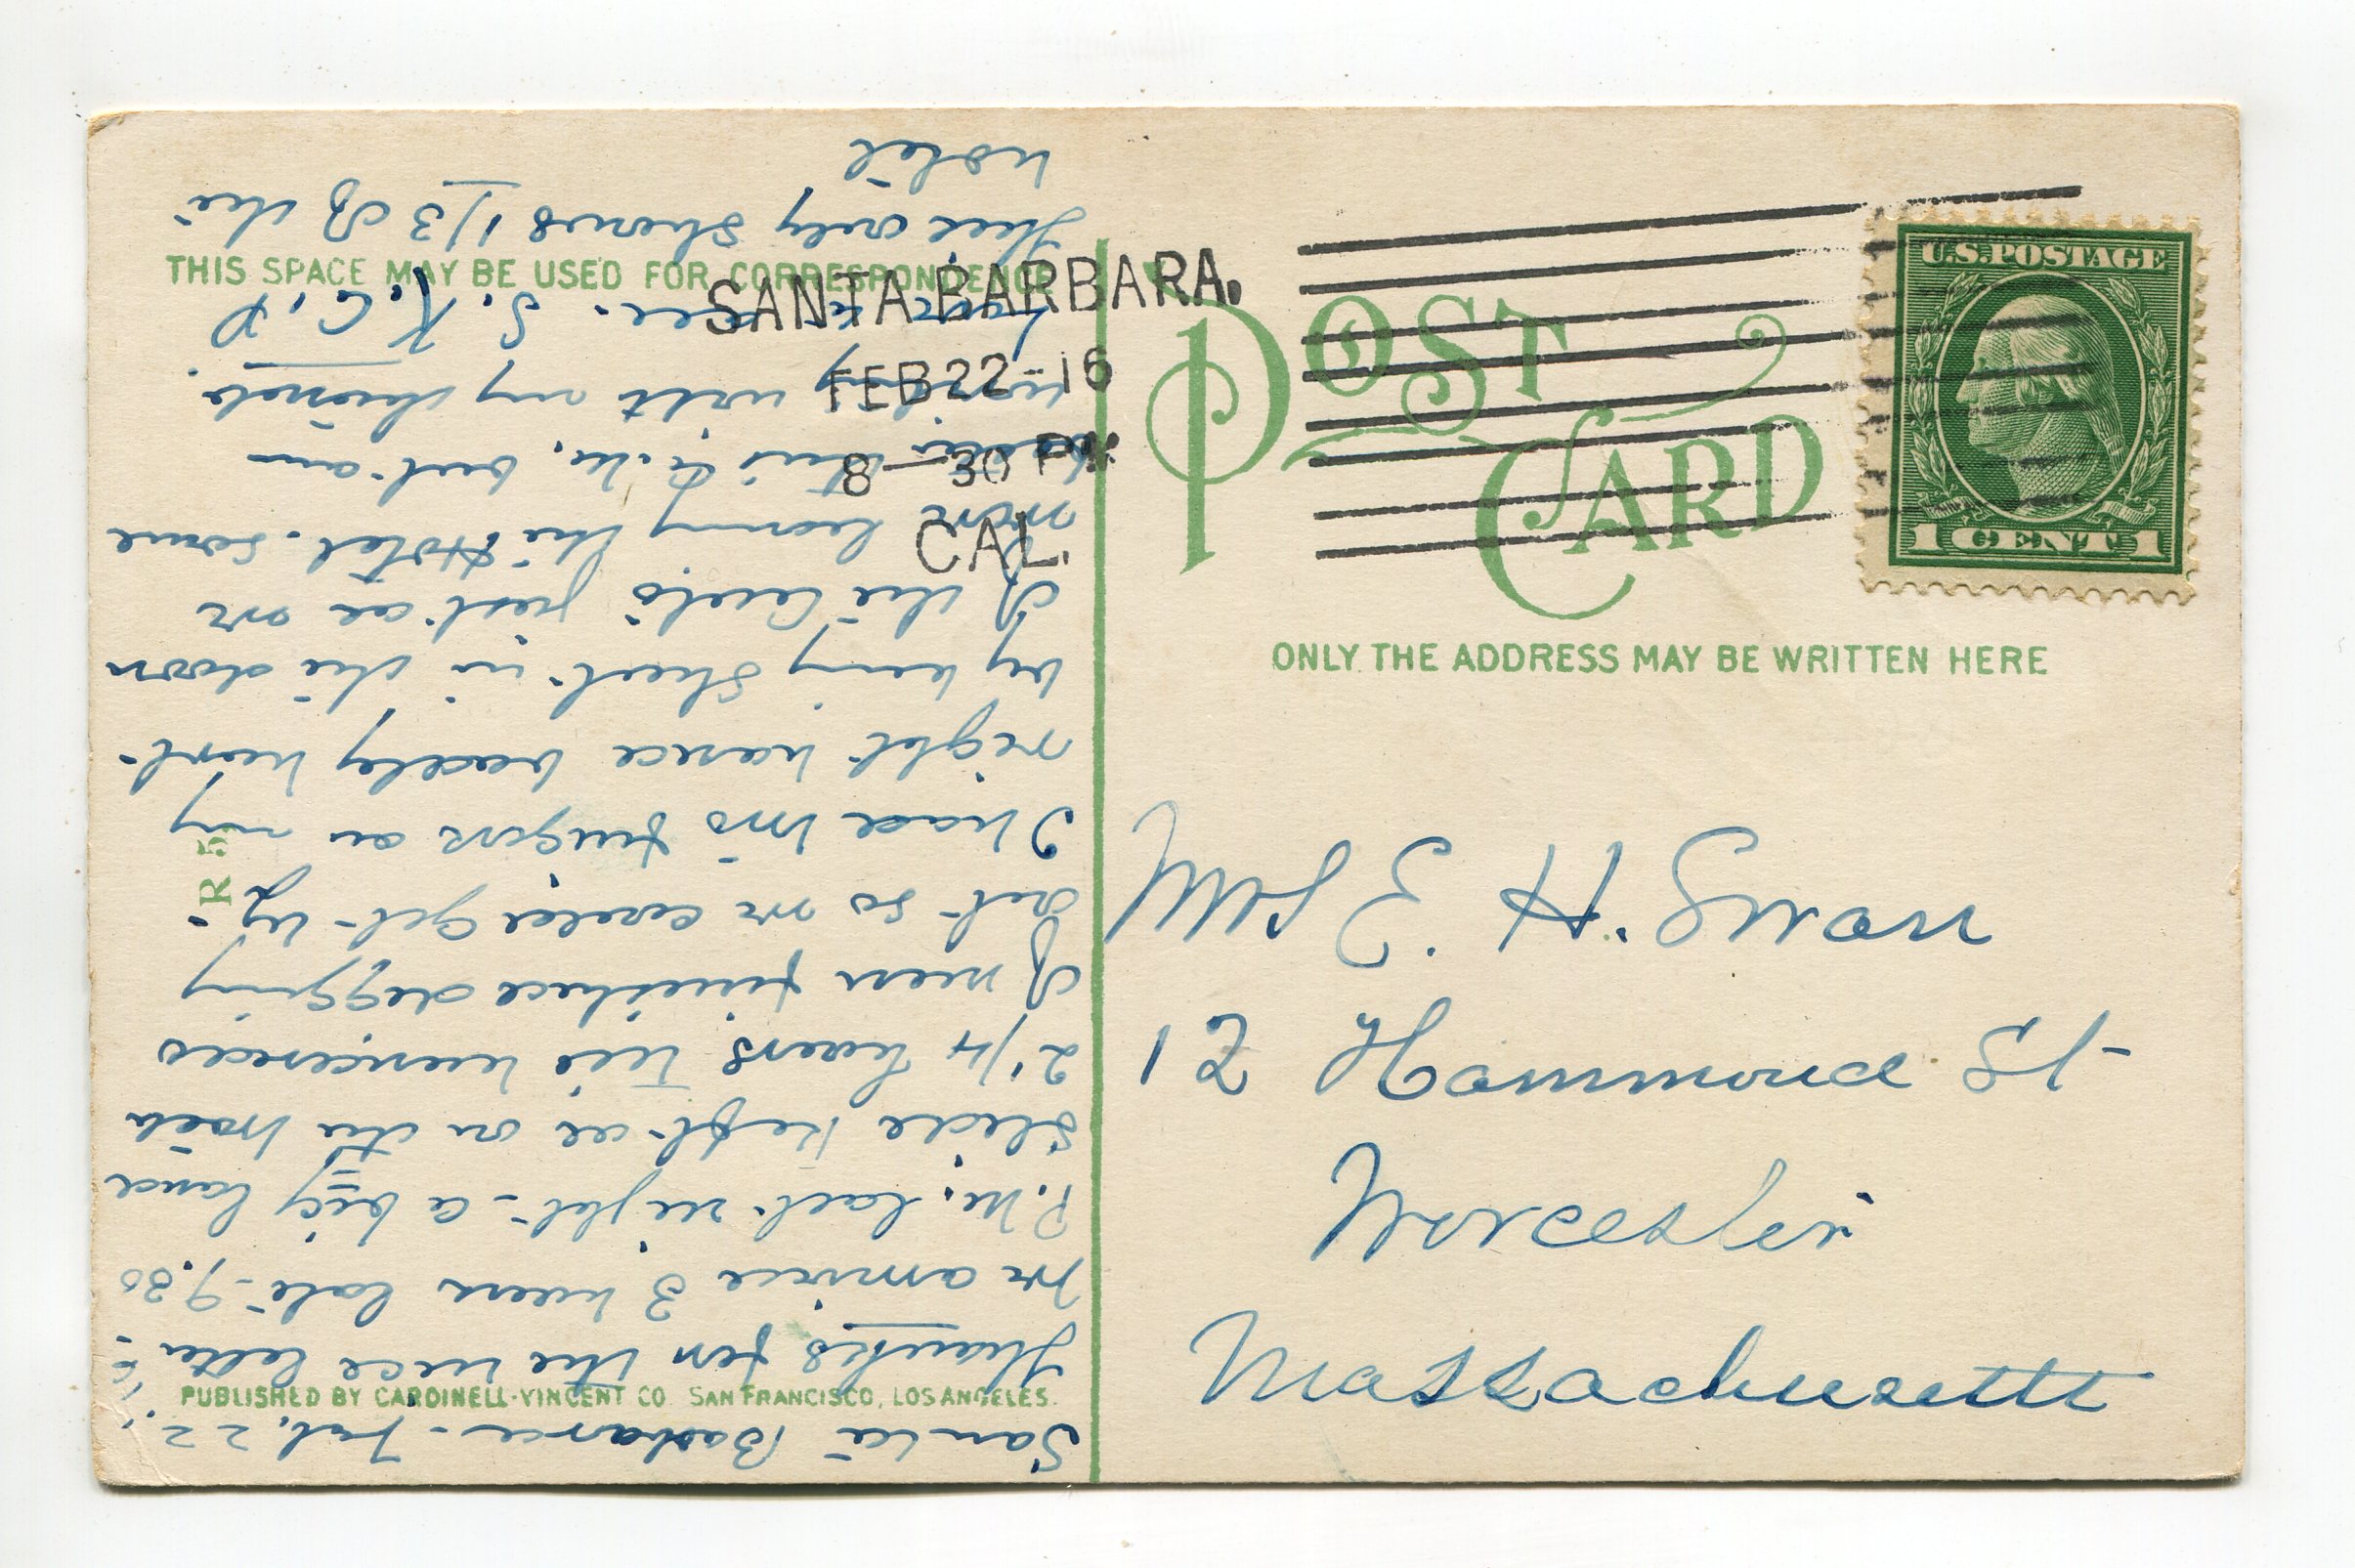 THIS SPACE MAY BE USED FOR CORRESPONDENCE
SANTA BARBARA.
FEB 22-16
8-30 PM
CAL.
POST
CARD
U.S. POSTAGE
1 CENT 1
ONLY THE ADDRESS MAY BE WRITTEN HERE
E. H. Swan
12 Hammond St
Worcester
Massachusetts
R 5
PUBLISHED BY CARDINELL-VINCENT CO. SAN FRANCISCO, LOS ANGELES.
Santa Barbara - Feb. 22
Thanks for the nice letter
we arrived 3 hours late - 9.30
P.M. last night - a big land
slide kept us on the train
2 1/4 hours till hundreds
of men finished digging
out so we could get by.
I had two fingers on my
right hand badly hurt
by being shut in the door
of the auto just as we
were leaving the Hotel. some
this A.M. but am
with my thumb.
S. K. C. P
This only shows 1/3 of the
hotel